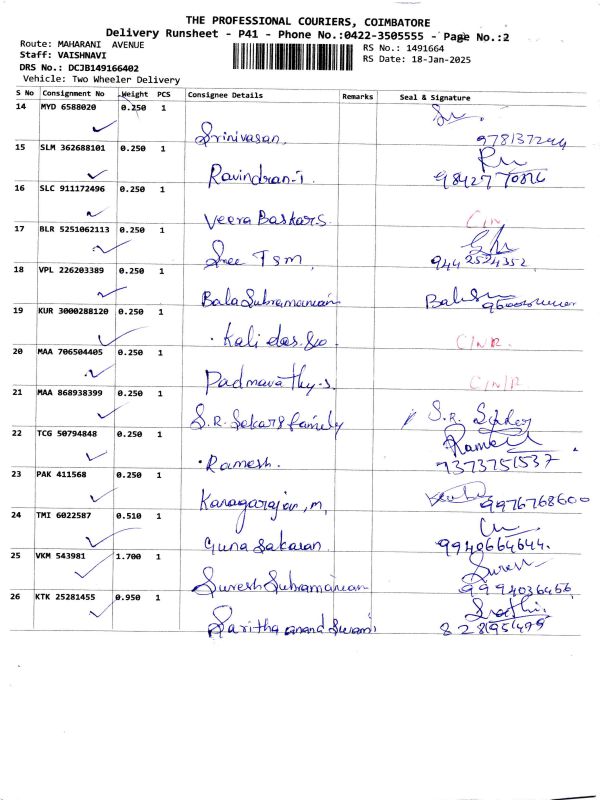 THE PROFESSIONAL COURIERS, COIMBATORE
Delivery Runsheet - P41 - Phone No.:0422-3505555 - Page No.:2
Route: MAHARANI AVENUE
RS No.: 1491664
Staff: VAISHNAVI
RS Date: 18-Jan-2025
DRS No.: DCJB149166402
Vehicle: Two Wheeler Delivery
S No Consignment No Weight PCS Consignee Details Remarks Seal & Signature
14 MYD 6588020 0.250 1
Srinivasan.
15 SLM 362688101 0.250 1
Ravindran.T. 9842770816
16 SLC 911172496 0.250 1
Veera Baskar.S. C/N
17 BLR 5251062113 0.250 1
Sree TSM, 944 2524352
18 VPL 226203389 0.250 1
Bala Subramanian
19 KUR 3000288120 0.250 1
Kali das. C/N/R.
20 MAA 706504405 0.250 1
Padmavathy.s. C/N/R
21 MAA 868938399 0.250 1
S.R. Sekar & family S.R. Sekar
22 TCG 50794848 0.250 1
Ramesh. 7373751537
23 PAK 411568 0.250 1
Kanagarajan, m, 9976768600
24 TMI 6022587 0.510 1
Guna Sakaran 9940664644.
25 VKM 543981 1.700 1 Suresh
Suresh Subramanian 9994036456
26 KTK 25281455 0.950 1
Saritha anand Swami